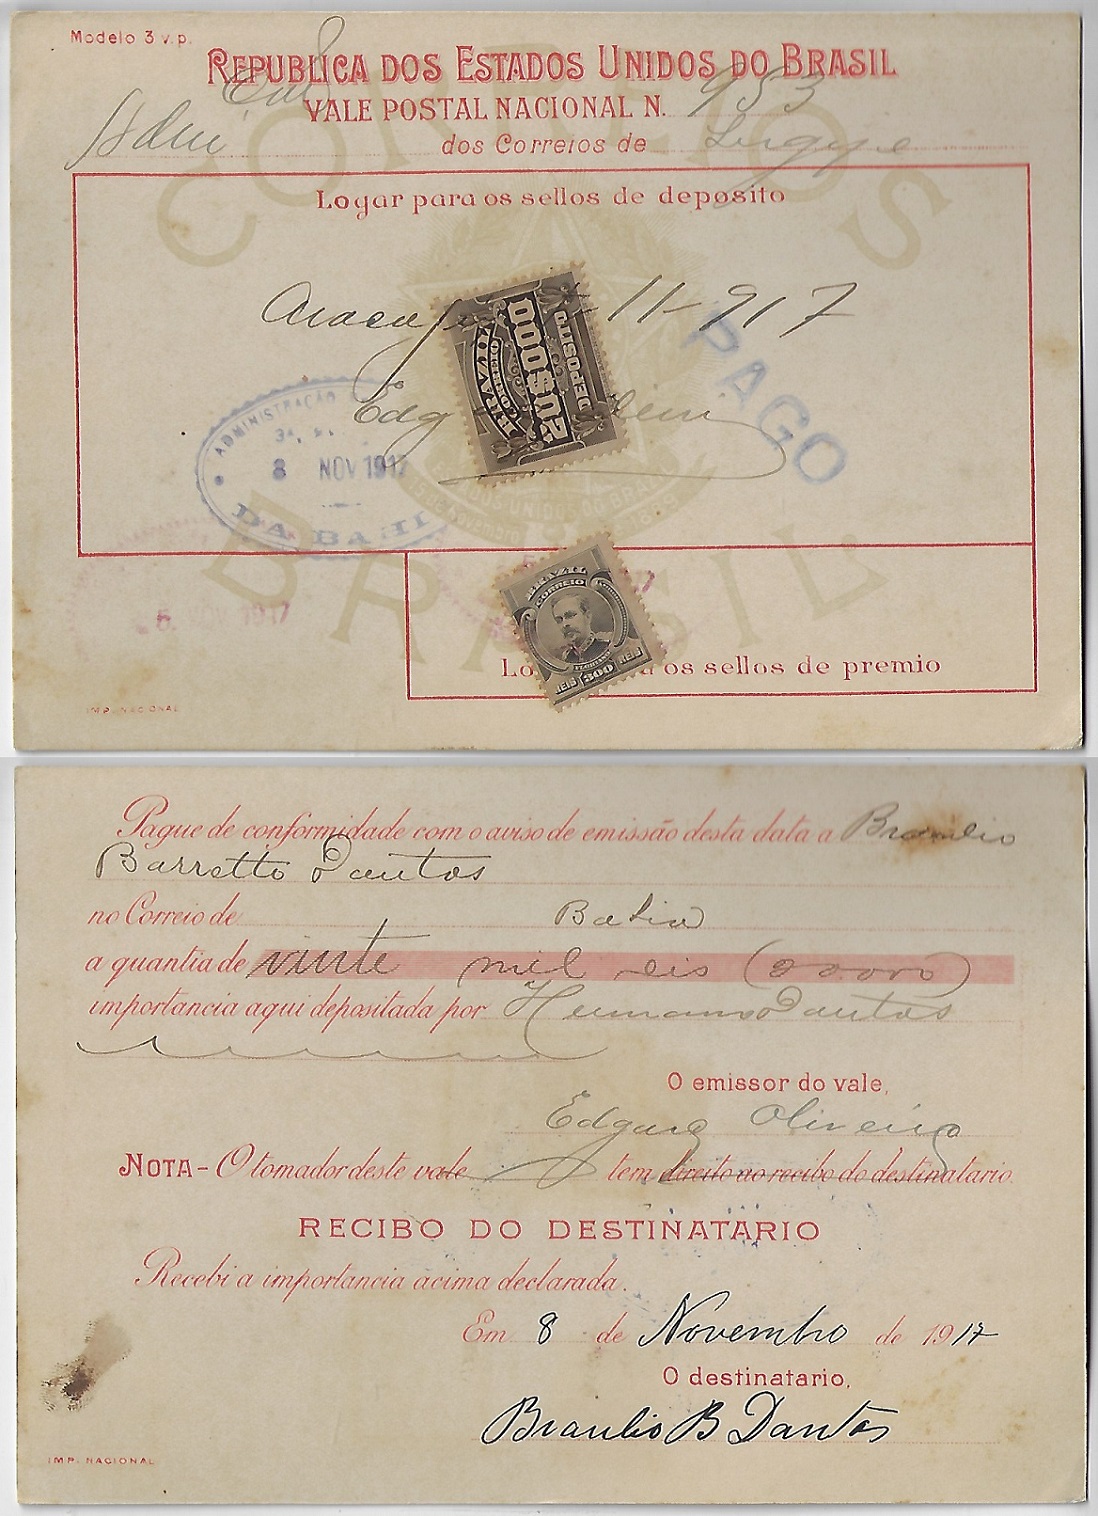 Modelo 3 v.p.
REPUBLICA DOS ESTADOS UNIDOS DO BRASIL
VALE POSTAL NACIONAL N. 953
Adm dos Correios de Sergipe
Logar para os sellos de deposito
CORREIOS
BRASIL
11-917
BRAZIL
CORREIO
20$000
DEPOSITO
PAGO
ADMINISTRAÇÃO
8 NOV 1917
DA BAHIA
5 NOV 1917
BRAZIL
CORREIO
FLORIANO
REIS 300 REIS
os sellos de premio
IMP. NACIONAL
Pague de conformidade com o aviso de emissão desta data a Braulio
Barretto Dantas
no Correio de Bahia
a quantia de vinte mil reis (20.000)
importancia aqui depositada por Hermano Dantas
O emissor do vale,
Edgard Oliveira
NOTA - O tomador deste vale tem direito ao recibo do destinatario.
RECIBO DO DESTINATARIO
Recebi a importancia acima declarada.
Em 8 de Novembro de 1917
O destinatario,
Braulio B Dantas
IMP. NACIONAL